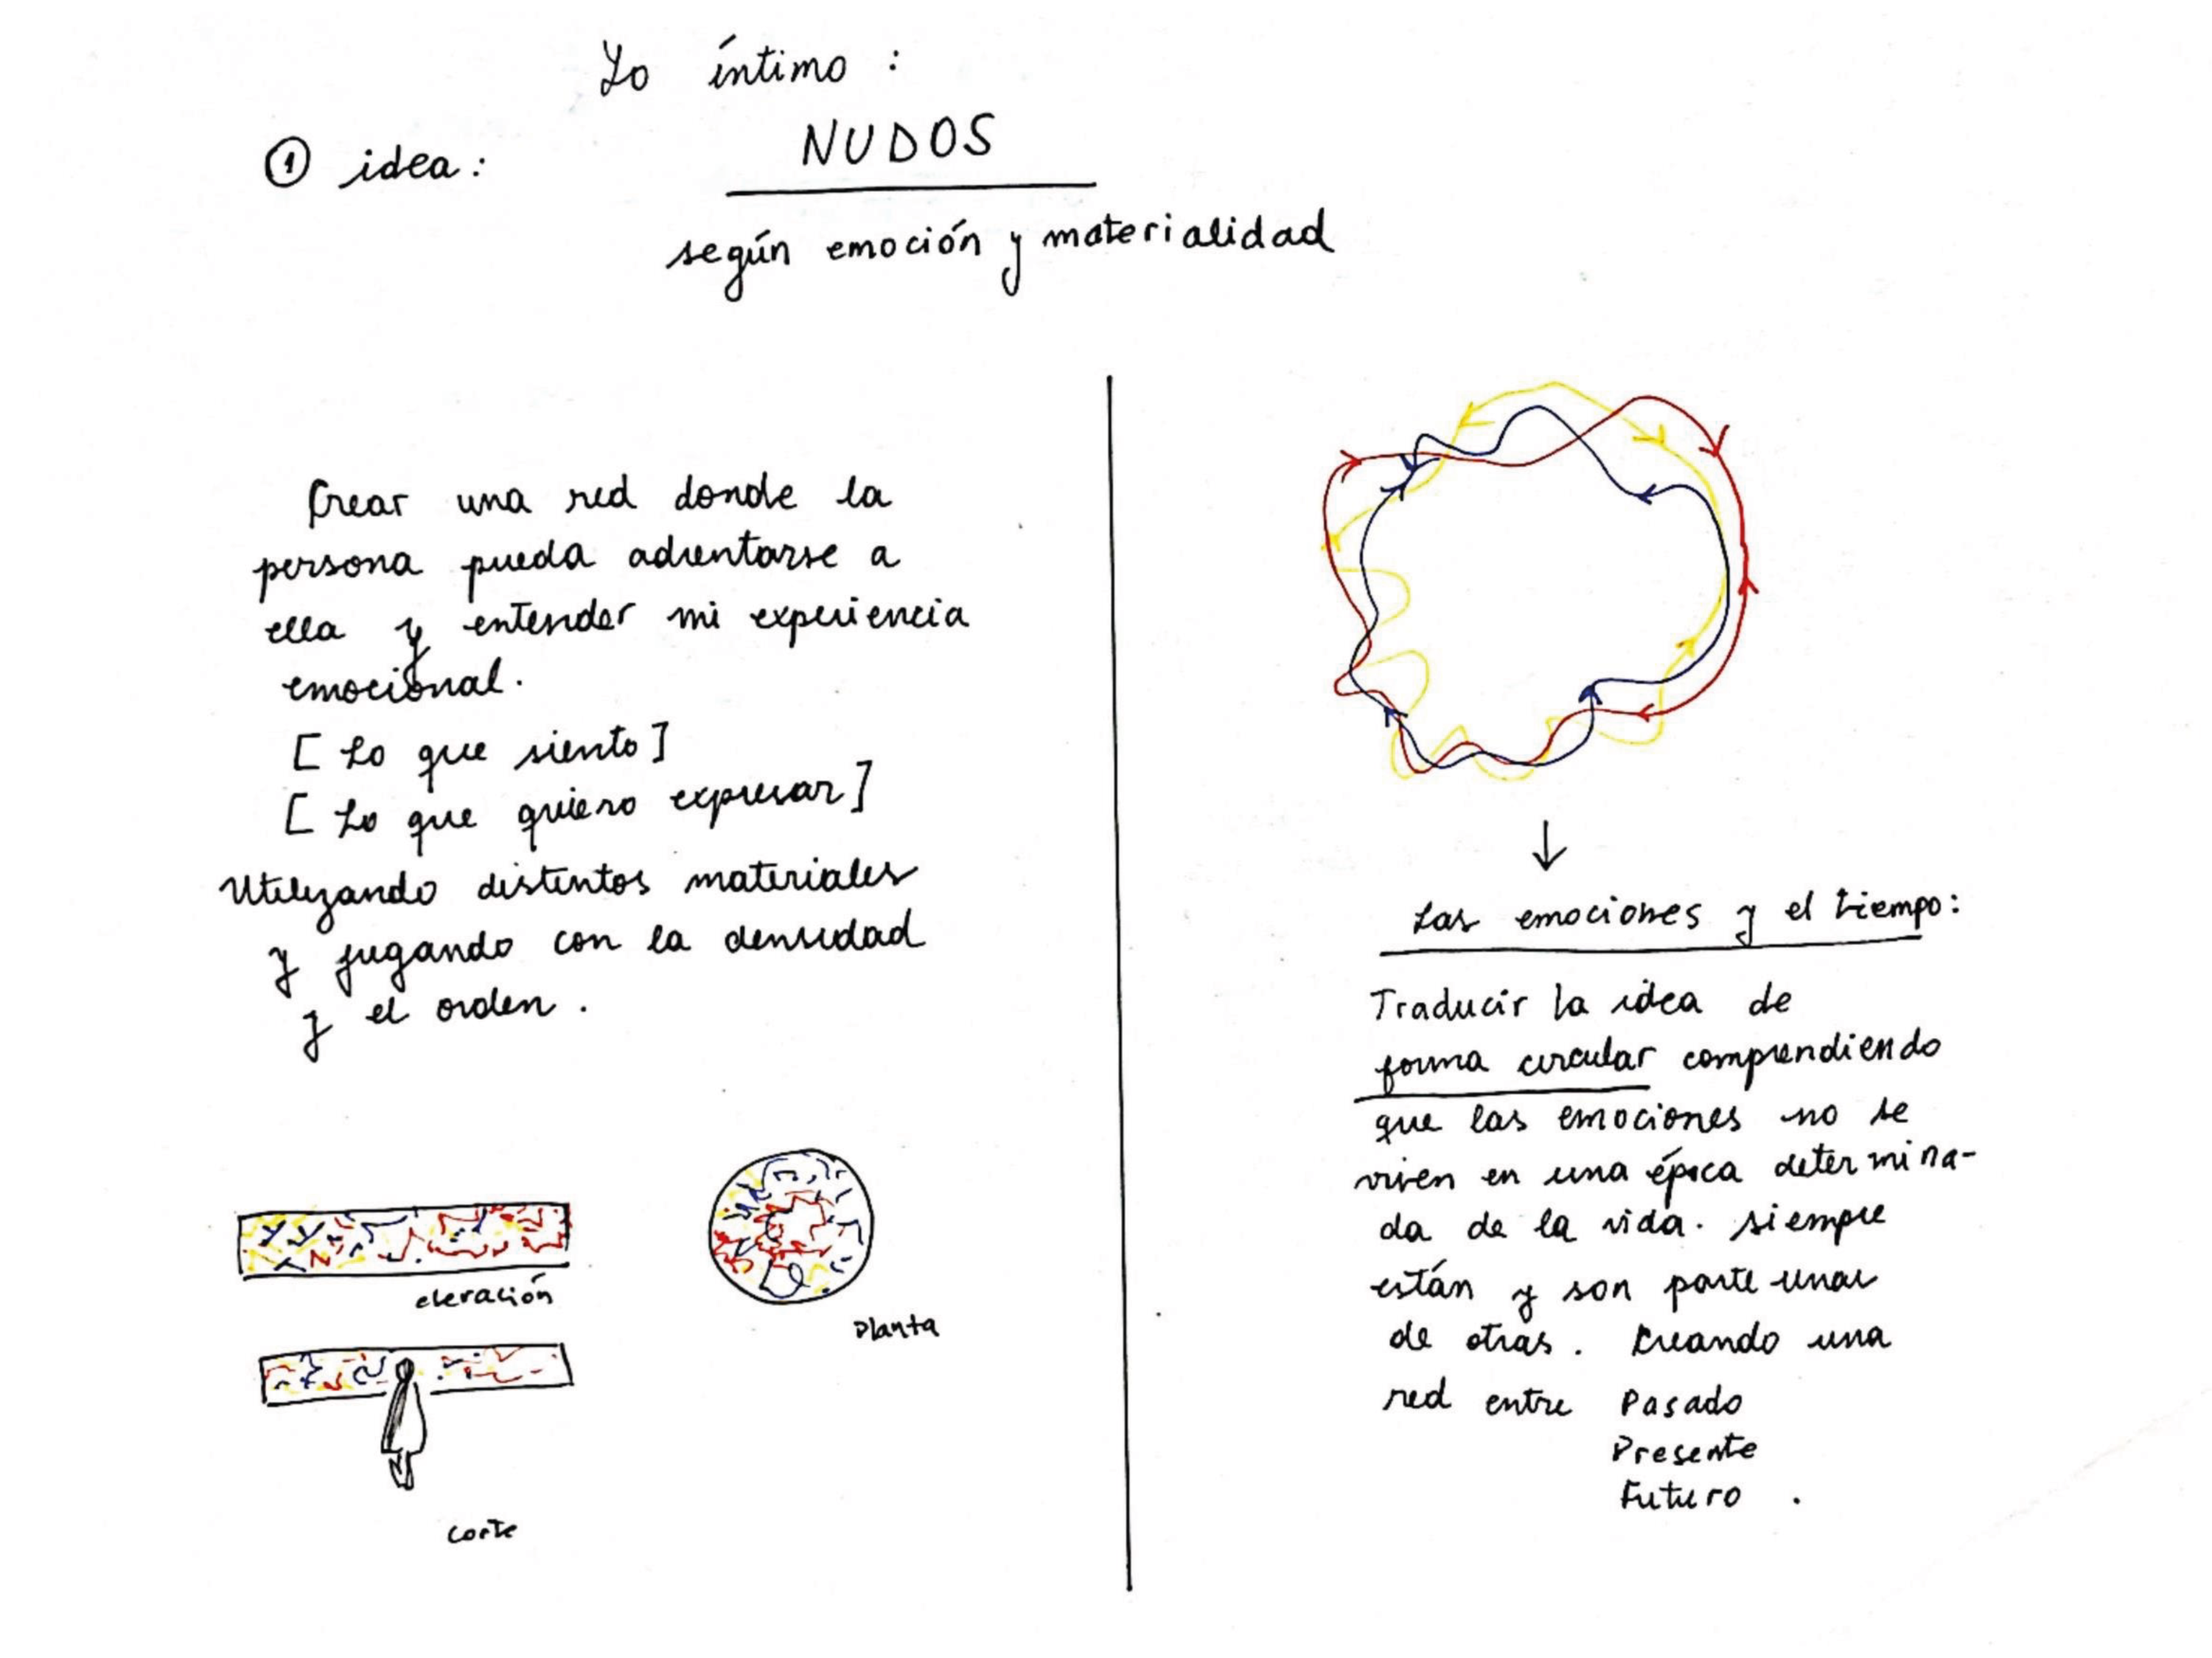 Lo íntimo :
① idea :
NUDOS
según emoción y materialidad
Crear una red donde la
persona pueda adentarse a
ella y entender mi experiencia
emocional.
[ Lo que siento ]
[ Lo que quiero expresar ]
Utilizando distintos materiales
y jugando con la densidad
y el orden .
elevación
Planta
corte
↓
Las emociones y el tiempo :
Traducir la idea de
forma circular comprendiendo
que las emociones no se
viven en una época determina-
da de la vida. siempre
están y son parte unas
de otras . Creando una
red entre Pasado
Presente
Futuro .